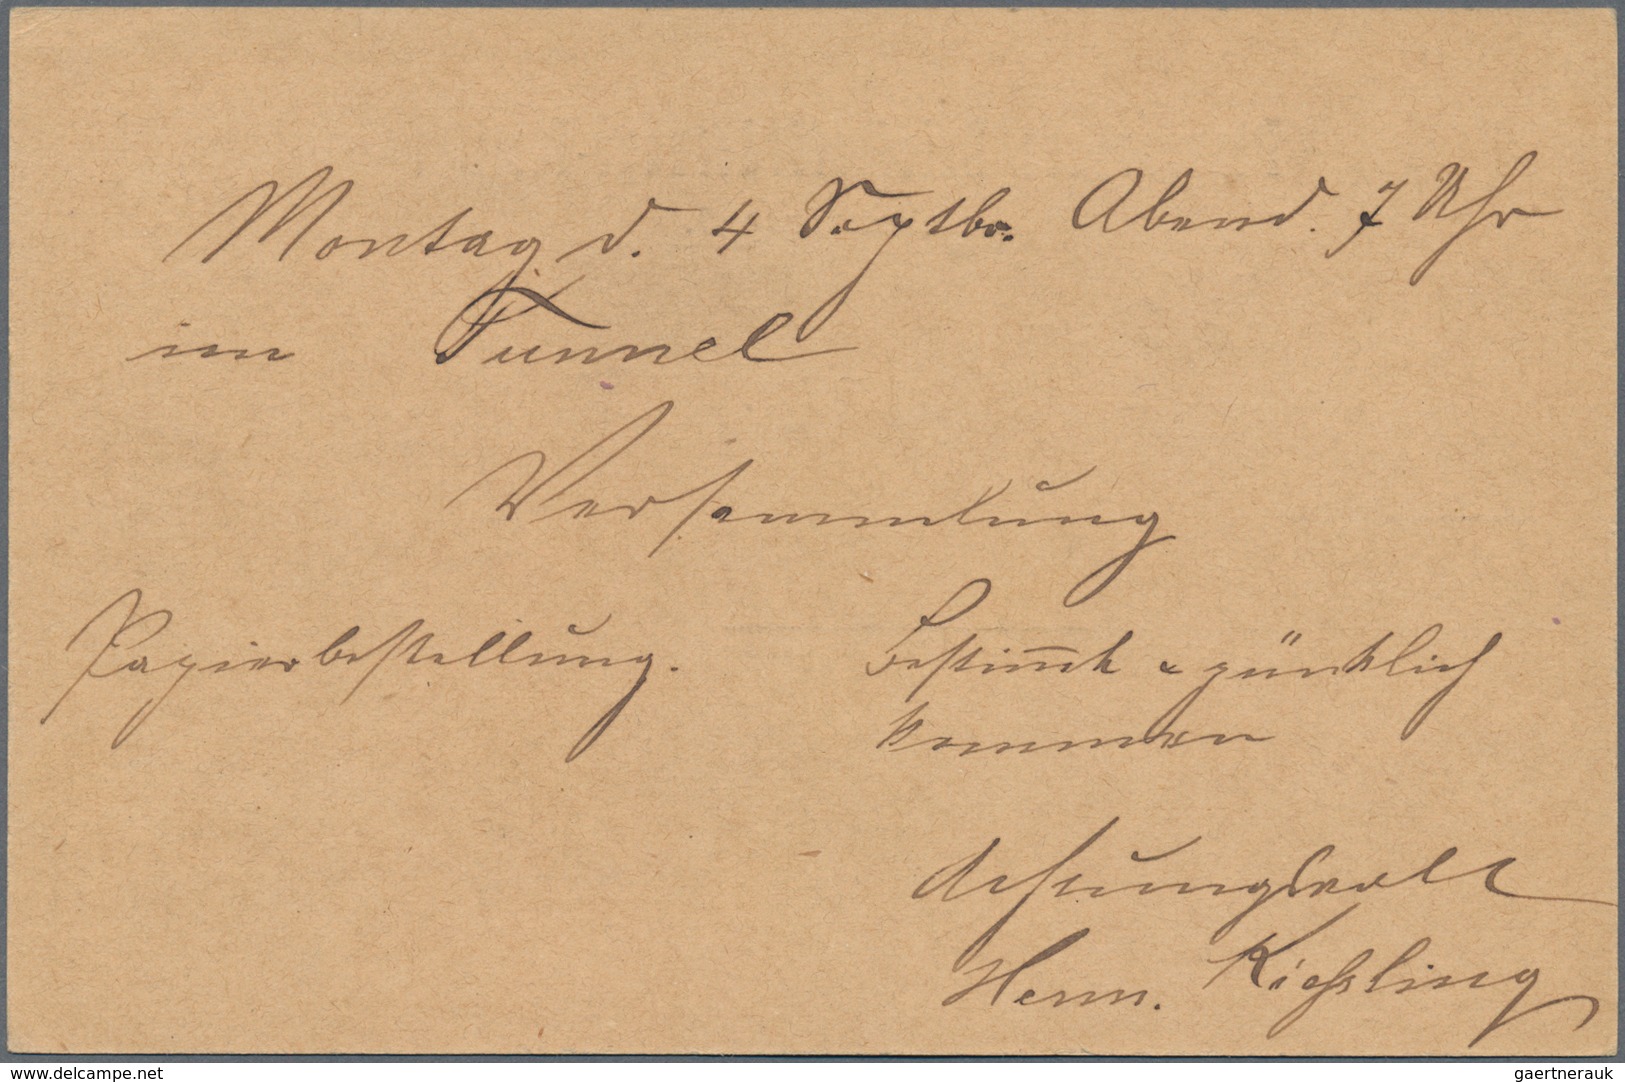 Montag d. 4 Septbr. Abend. 7 Uhr
im Tunnel
Versammlung
Papierbestellung. Bestimmt & pünktlich
kommen
Achtungsvoll
Herm. Kießling
www.delcampe.net
gaertnerauk